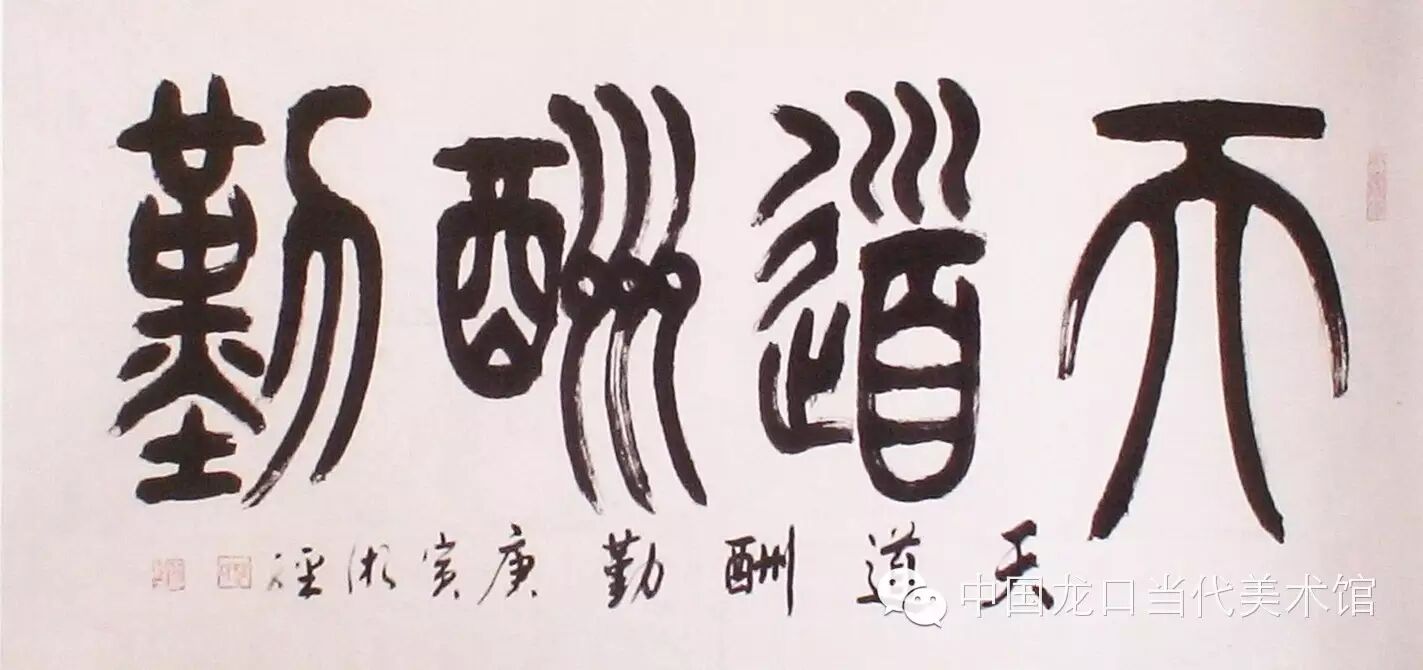 天道酬勤
天道酬勤 庚寅
中国龙口当代美术馆